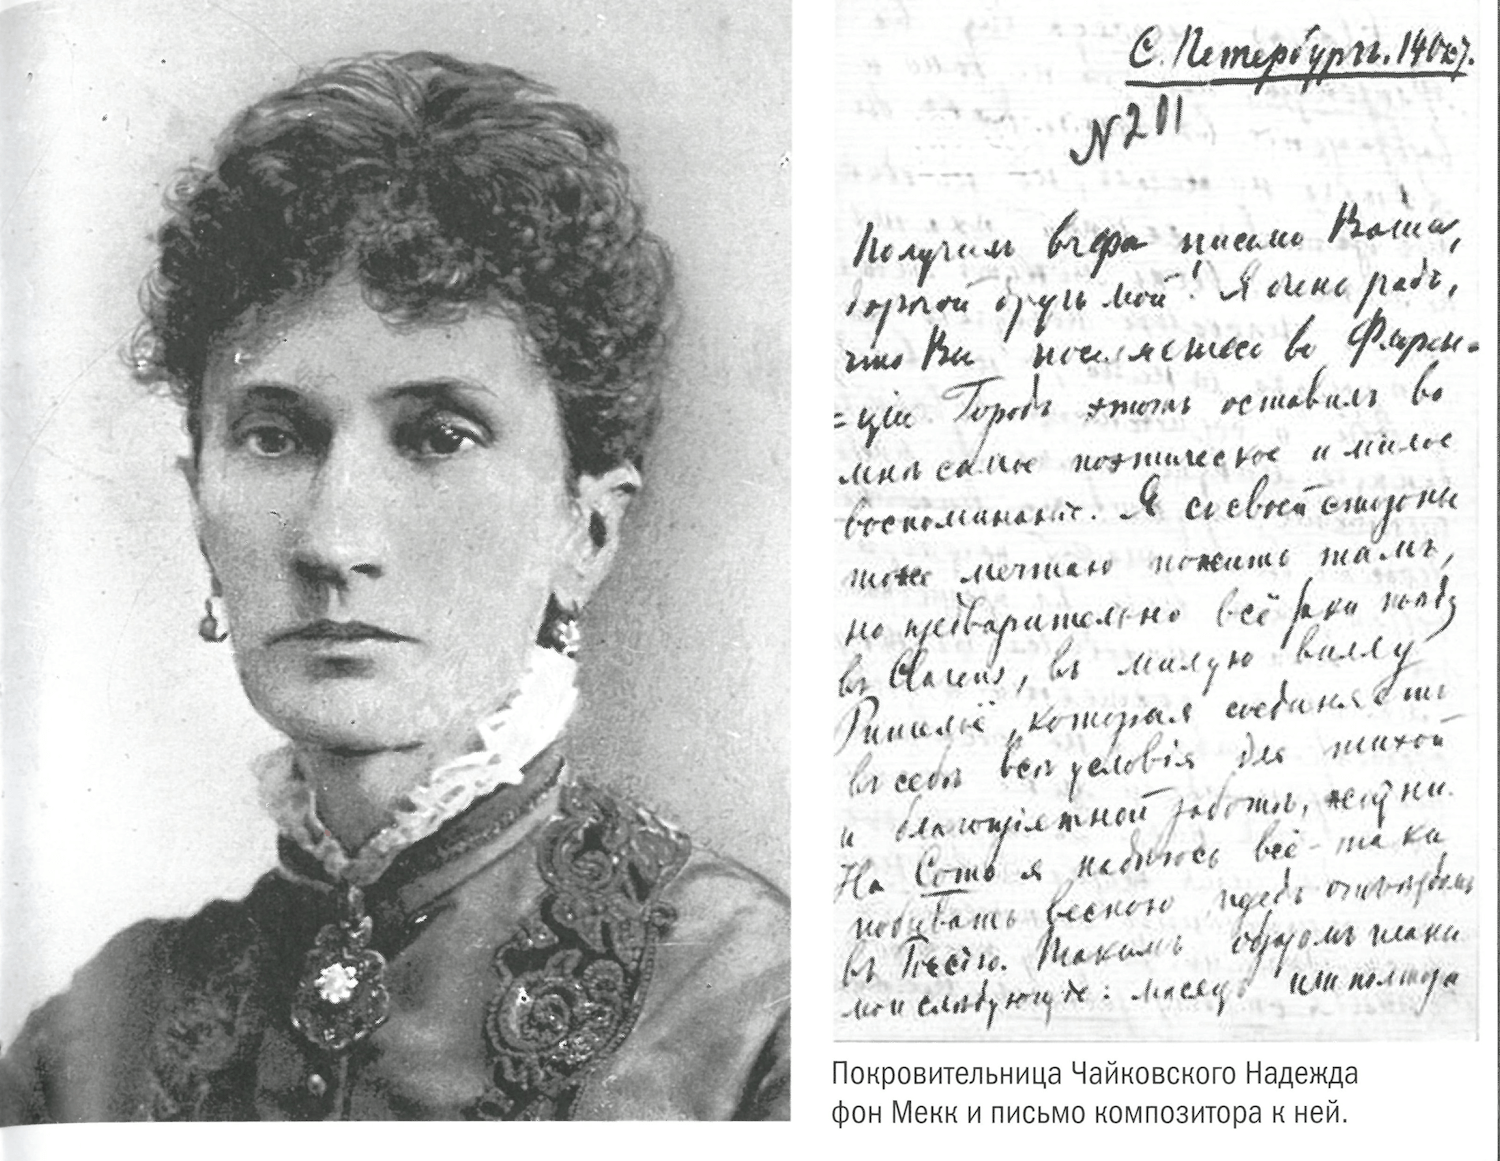 С. Петербургъ. 14 окт.
N 201
Получилъ вчера письмо Ваше,
дорогой другъ мой! Я очень радъ,
что Вы поселяетесь во Флорен-
=ціи. Городъ этотъ оставилъ во
мнѣ самое поэтическое и милое
воспоминаніе. Я съ своей стороны
тоже мечтаю пожить тамъ,
но предварительно всё таки поѣду
въ Clarens, въ милую виллу
Ришельё, которая соединяетъ
въ себѣ всѣ условія для тихой
и благопріятной работѣ, жизни.
На Como я надѣюсь всё-таки
побывать весною предъ отъѣздомъ
въ Россію. Такимъ образомъ планы
мои слѣдующіе: мѣсяцъ или полтора
Покровительница Чайковского Надежда
фон Мекк и письмо композитора к ней.